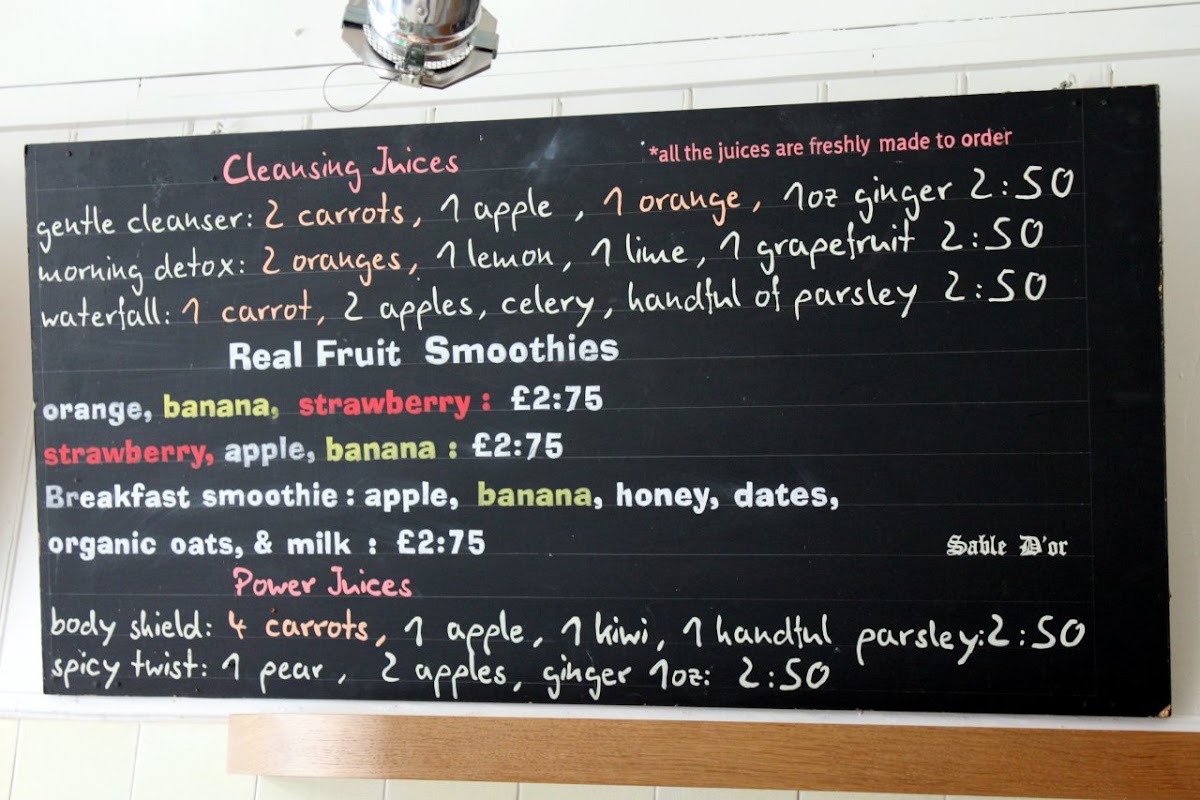 Cleansing Juices
*all the juices are freshly made to order
gentle cleanser: 2 carrots, 1 apple , 1 orange, 1oz ginger 2:50
morning detox: 2 oranges, 1 lemon, 1 lime, 1 grapefruit 2:50
waterfall: 1 carrot, 2 apples, celery, handful of parsley 2:50
Real Fruit Smoothies
orange, banana, strawberry : £2:75
strawberry, apple, banana : £2:75
Breakfast smoothie : apple, banana, honey, dates,
organic oats, & milk : £2:75
Sable D'or
Power Juices
body shield: 4 carrots, 1 apple, 1 kiwi, 1 handful parsley:2:50
spicy twist: 1 pear, 2 apples, ginger 1oz: 2:50